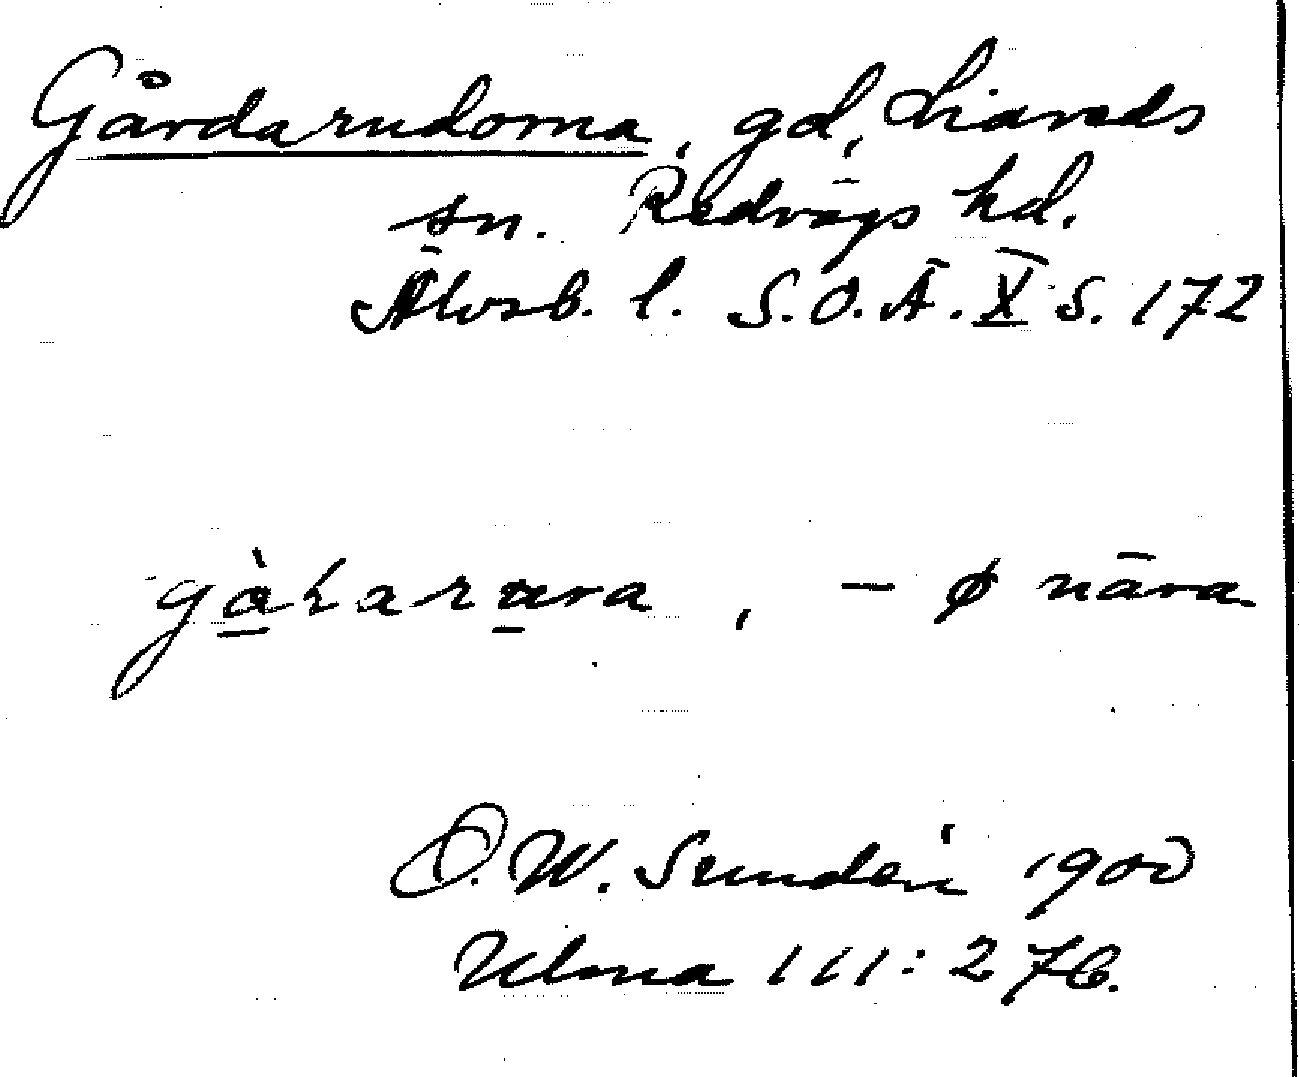 Gårdarudorna, gd, Liareds
sn. Redvägs hd.
Älvsb. l. S.O.Ä. X S. 172
– ø nära
D. W. Sundén 1900
Ulma 111:276.